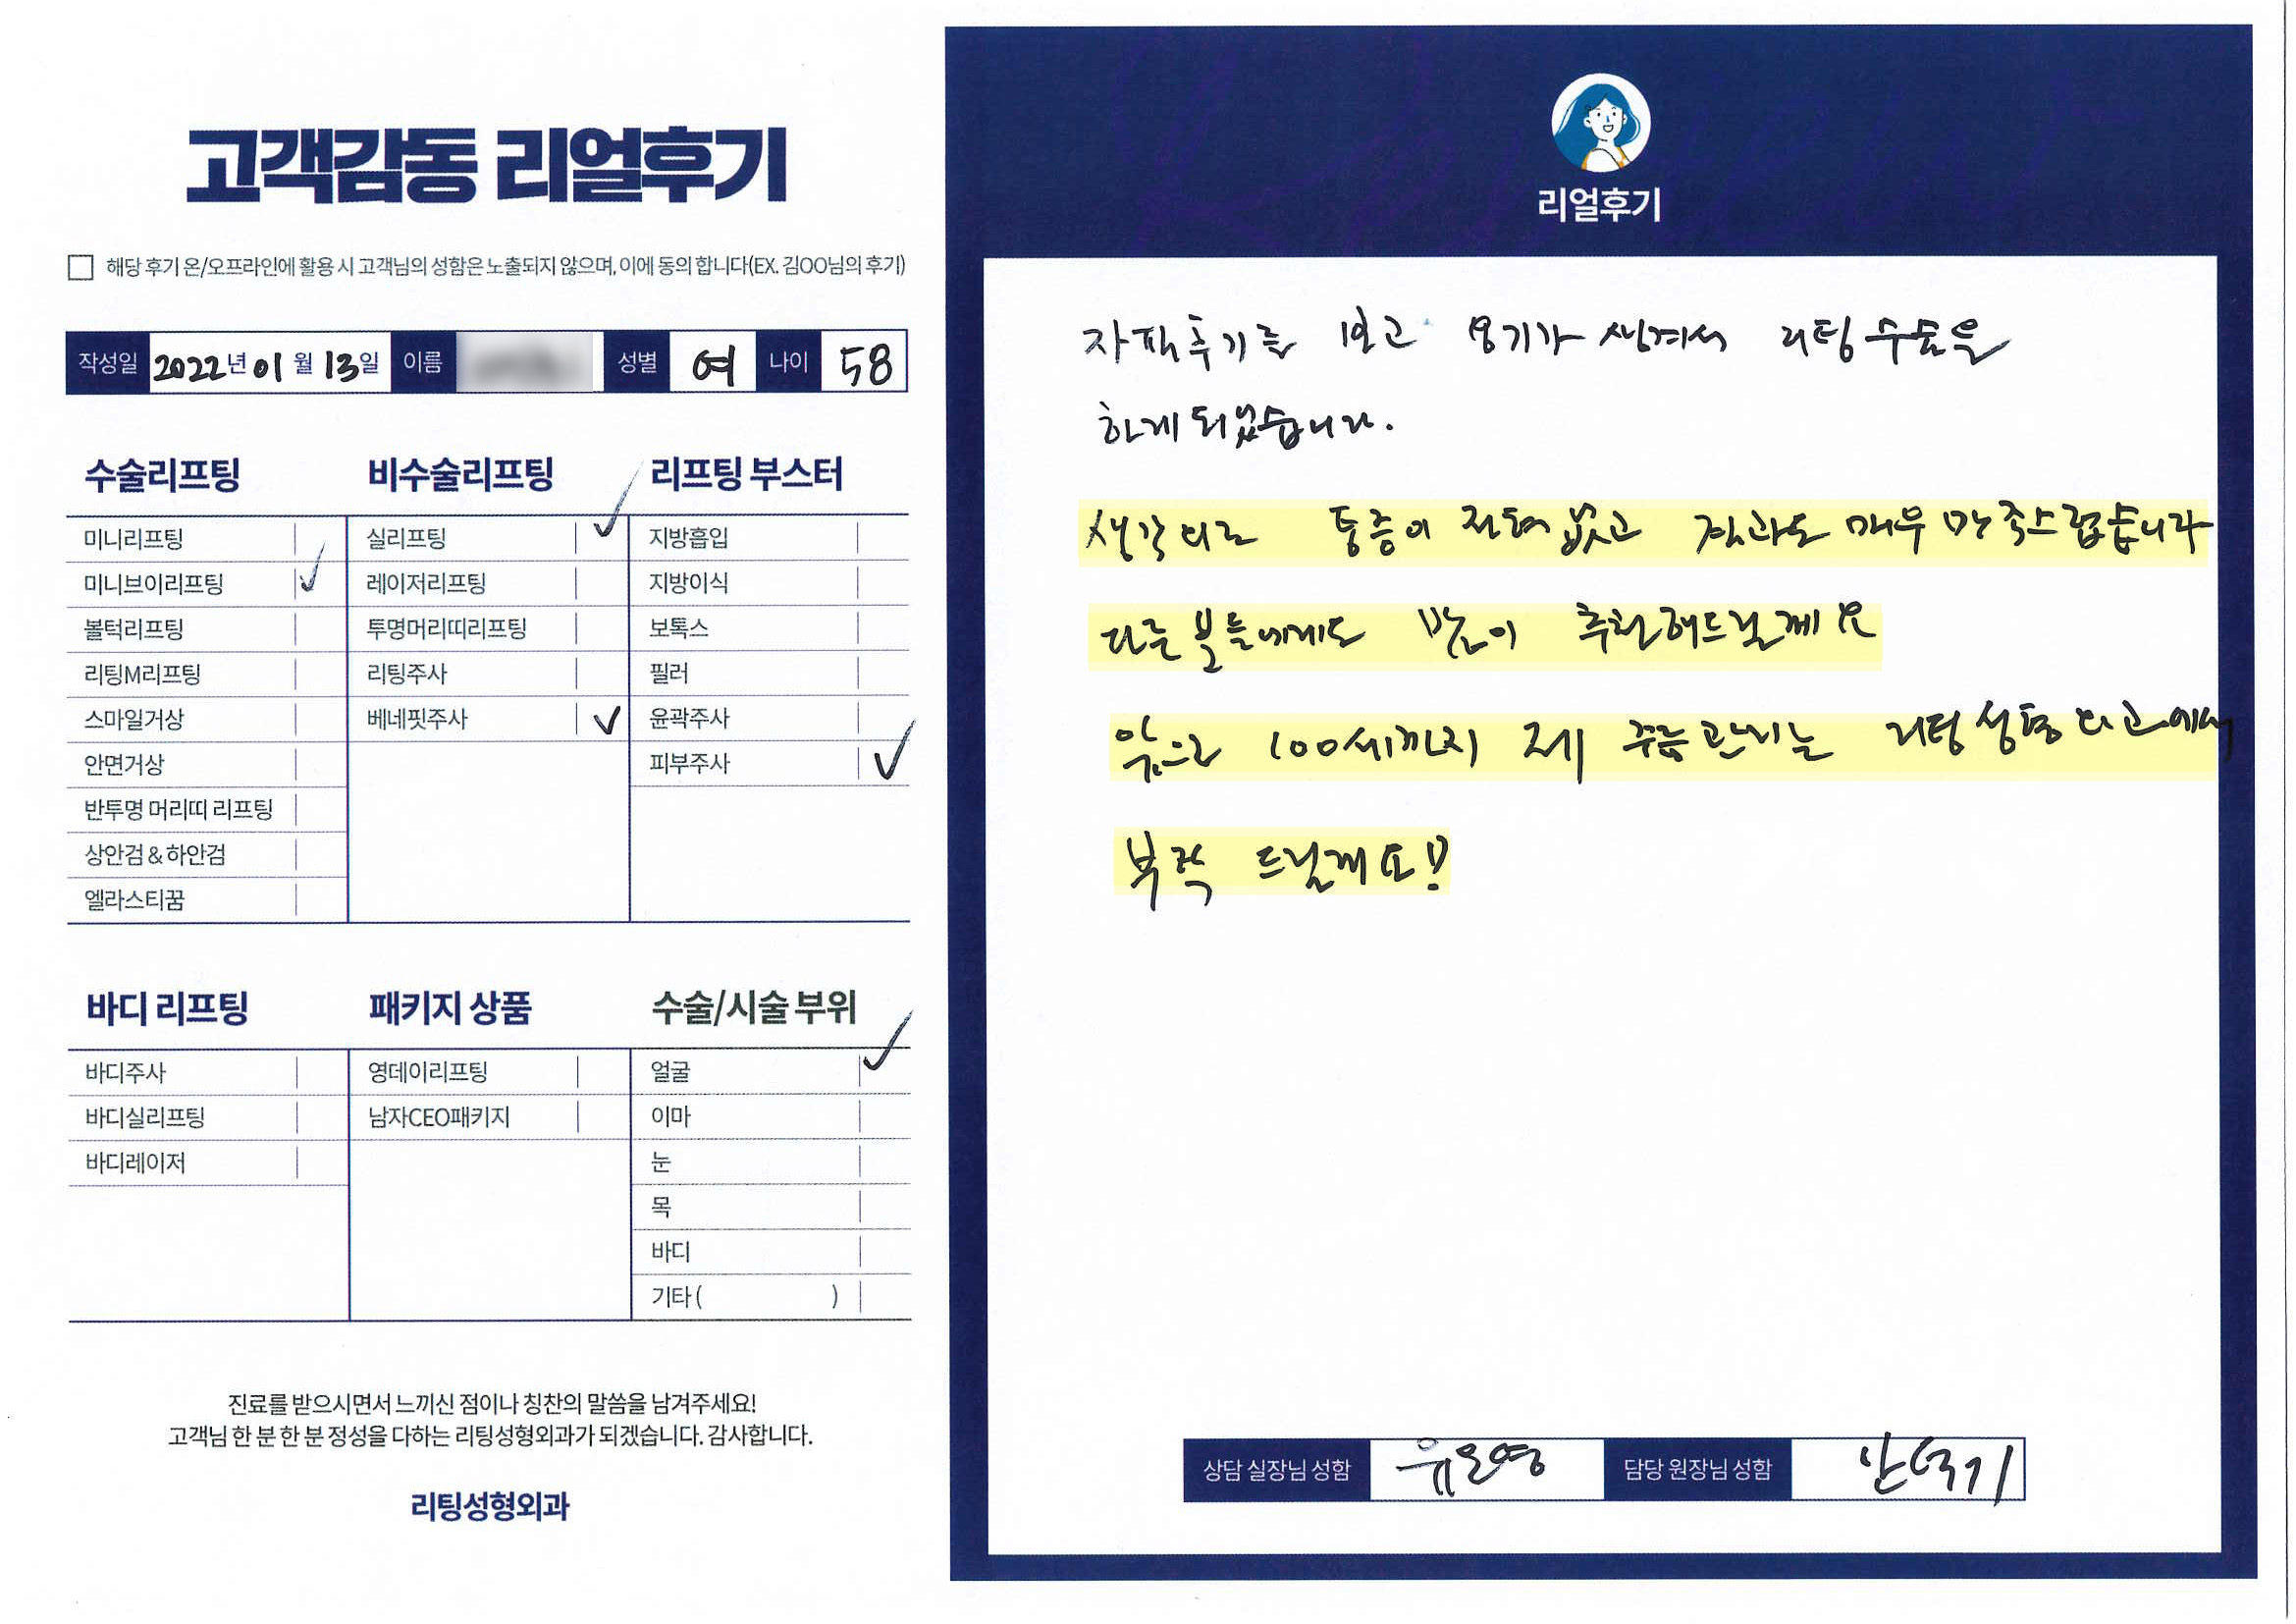 고객감동 리얼후기
해당 후기 온/오프라인에 활용 시 고객님의 성함은 노출되지 않으며, 이에 동의 합니다(EX. 김OO님의 후기)
작성일 2022년 01월 13일 이름 성별 여 나이 58
수술리프팅
미니리프팅
미니브이리프팅 ✓
볼턱리프팅
리팅M리프팅
스마일거상
안면거상
반투명 머리띠 리프팅
상안검 & 하안검
엘라스티꿈
비수술리프팅
실리프팅 ✓
레이저리프팅
투명머리띠리프팅
리팅주사
베네핏주사 ✓
리프팅 부스터
지방흡입
지방이식
보톡스
필러
윤곽주사
피부주사 ✓
바디 리프팅
바디주사
바디실리프팅
바디레이저
패키지 상품
영데이리프팅
남자CEO패키지
수술/시술 부위
얼굴 ✓
이마
눈
목
바디
기타 ( )
진료를 받으시면서 느끼신 점이나 칭찬의 말씀을 남겨주세요!
고객님 한 분 한 분 정성을 다하는 리팅성형외과가 되겠습니다. 감사합니다.
리팅성형외과
리얼후기
자필후기를 보고 용기가 생겨서 리팅수술을
하게 되었습니다.
생각외로 통증이 전혀 없고 결과도 매우 만족스럽습니다
다른 분들에게도 많이 추천해드릴께요
앞으로 100세까지 제 주름관리는 리팅성형외과에서
부탁 드릴께요!!
상담 실장님 성함 유은영 담당 원장님 성함